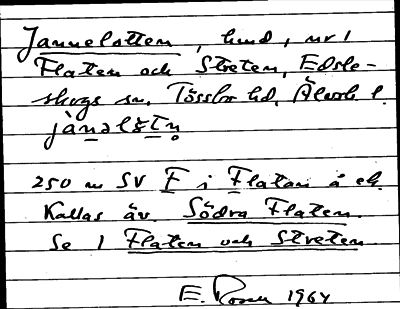 Jannelotten, hmd, nr 1
Flaten och Streten, Edsle-
skogs sn, Tössbo hd, Älvsb. l.
jànəlȯtn̥
250 m SV F i Flaten å ek.
Kallas äv. Södra Flaten.
Se 1 Flaten och Streten
E. Rosen 1964